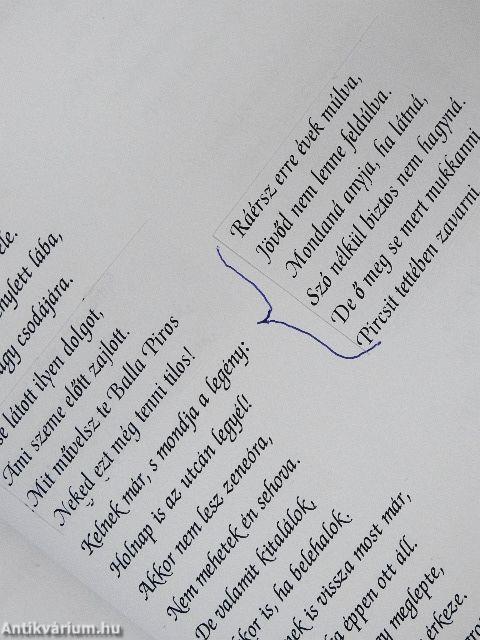 Ráérsz erre évek múlva,
Jövőd nem lenne feldúlva.
Mondaná anyja, ha látná,
Szó nélkül biztos nem hagyná.
De ő meg se mert mukkanni
Pircsit tettében zavarni
lába,
csodájára.
látott ilyen dolgot,
Ami szeme előtt zajlott.
Mit művelsz te Balla Piros
Neked ezt még tenni tilos!
Kelnek már, s mondja a legény:
Holnap is az utcán legyél!
Akkor nem lesz zeneóra,
Nem mehetek én sehova.
De valamit kitalálok,
is, ha belehalok.
is vissza most már,
éppen ott áll.
meglepte,
Antikvárium.hu